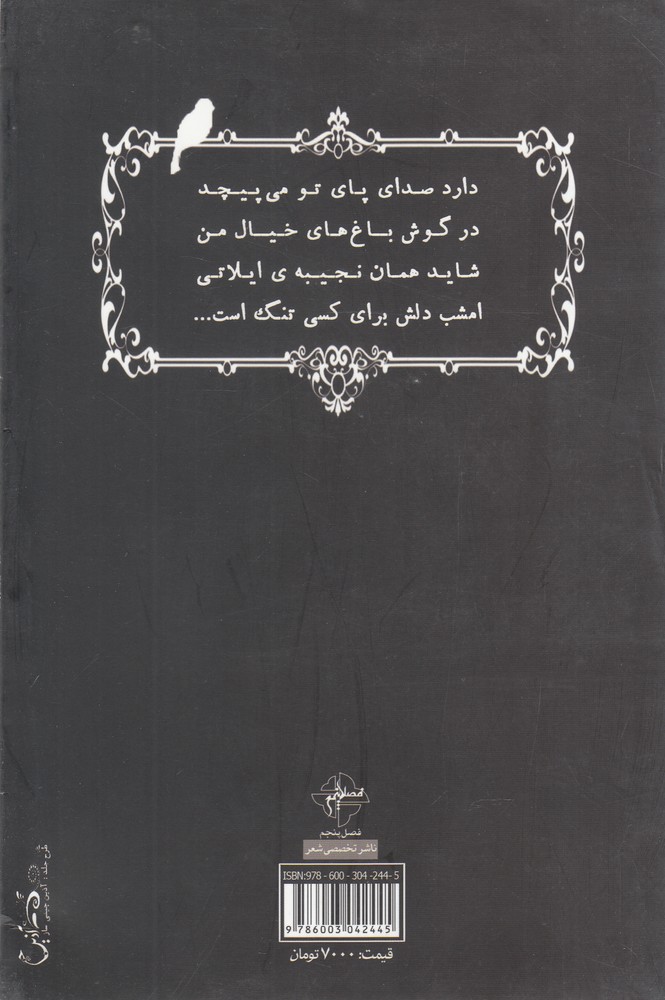 دارد صدای پای تو می‌پیچد
در گوش باغ‌های خیال من
شاید همان نجیبه ی ایلاتی
امشب دلش برای کسی تنگ است...
فصل پنجم
فصل پنجم
ناشر تخصصی شعر
ISBN:978 - 600 - 304 -244- 5
9 786003 042445
قیمت: ۷۰۰۰ تومان